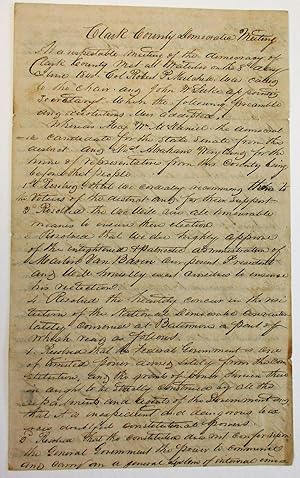 Clark County Democratic Meeting
At a respectable meeting of the democracy of
Clark County met at Waterloo on the 8th day of
June 1840 Col was called
to the Chair and John appointed
Secretary. When the following preamble
and resolutions was adopted.
Whereas Maj Wm McDaniel the democratic
candidate for the State Senate from this
district and Abraham Wayland for the
house of representatives from this County being
before the people
1st Resolved that we cordially recommend them to
the voters of the district and for their support
2nd Resolved that we will use all honourable
means to ensure their election
Resolved that we do highly approve
of the enlightened & patriotic administration of
Martin Van Buren our present President
and will honestly exert ourselves to ensure
his reelection
4 Resolved that we heartily concur in the
of the National democratic Convention
lately convened at Baltimore a part of
which resd as follows.
1. Resolved that the Federal Government is one
of limited powers derived solely from the con-
stitution, and the grants of power shown therein
ought to be strictly construed by all the
departments and agents of the Government and
that it is inexpedient and dangerous to
exercise doubtful constitutional powers.
2nd Resolved that the constitution does not confer upon
the General Government the power to commence
and carry on a general system of internal